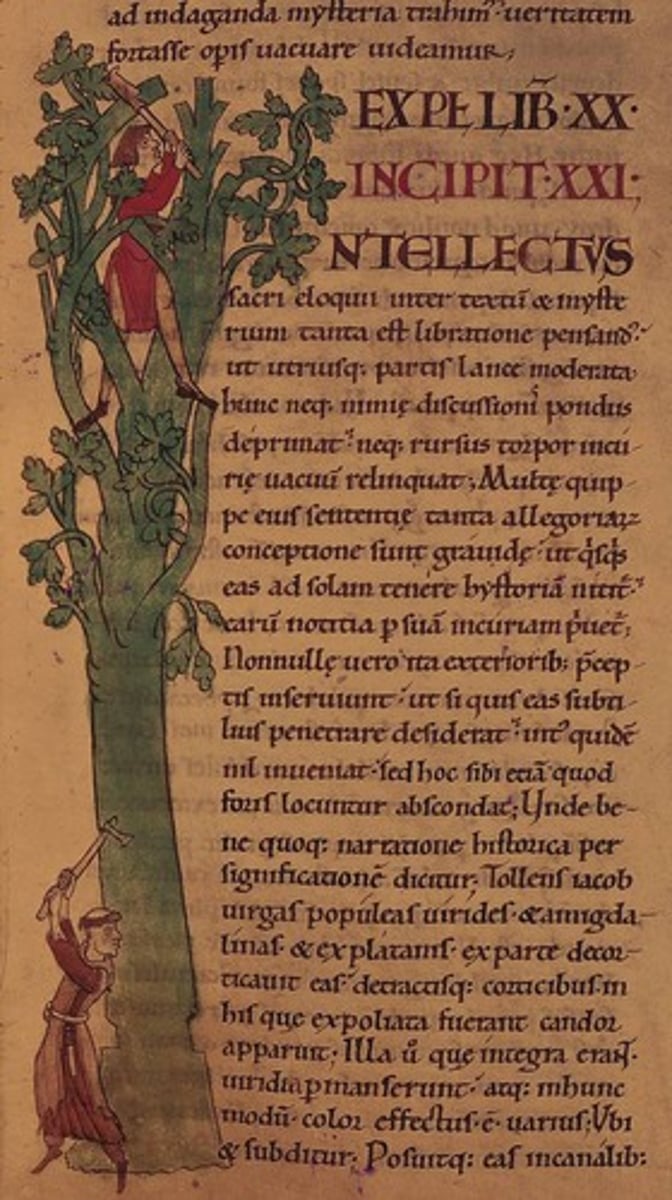 ad indaganda mysteria trahim᷑· ueritatem
fortasse opis uacuare uideamur;
EXPƚ LIB̄·XX·
INCIPIT·XXI·
NTELLECTVS
sacri eloquii inter textū & myste
rium tanta est libratione pensand᷒·
ut utriusq; partis lance moderata
hunc neq; nimię discussionis pondus
deprimat· neq; rursus torpor incu-
rię uacuū relinquat; Multę quip-
pe eius sententię tanta allegoriarꝝ
conceptione sunt grauidę· ut qͥsqͥs
eas ad solam tenere hystoriā nitit᷑·
earū notitia p suā incuriam pͥuet᷑;
Nonnullę uero ita exteriorib; p̄cep-
tis inseruiunt· ut si quis eas subti-
lius penetrare desiderat· int᷒ quidē
nil inueniat· sed hoc sibi etiā quod
foris locuntur abscondat; Unde be-
ne quoq; narratione historica per
significationē dicitur; Tollens iacob
uirgas populeas uirides· & amigda-
linas· & ex platanis· ex parte decor-
ticauit eas· detractisq; corticibus· in
his que expoliata fuerant candor
apparuit; Illa ů que integra erant·
uiridia pmanserunt· atq; in hunc
modū· color effectus· ē· uarius; Vbi
& subditur; Posuitq; eas in canalib;